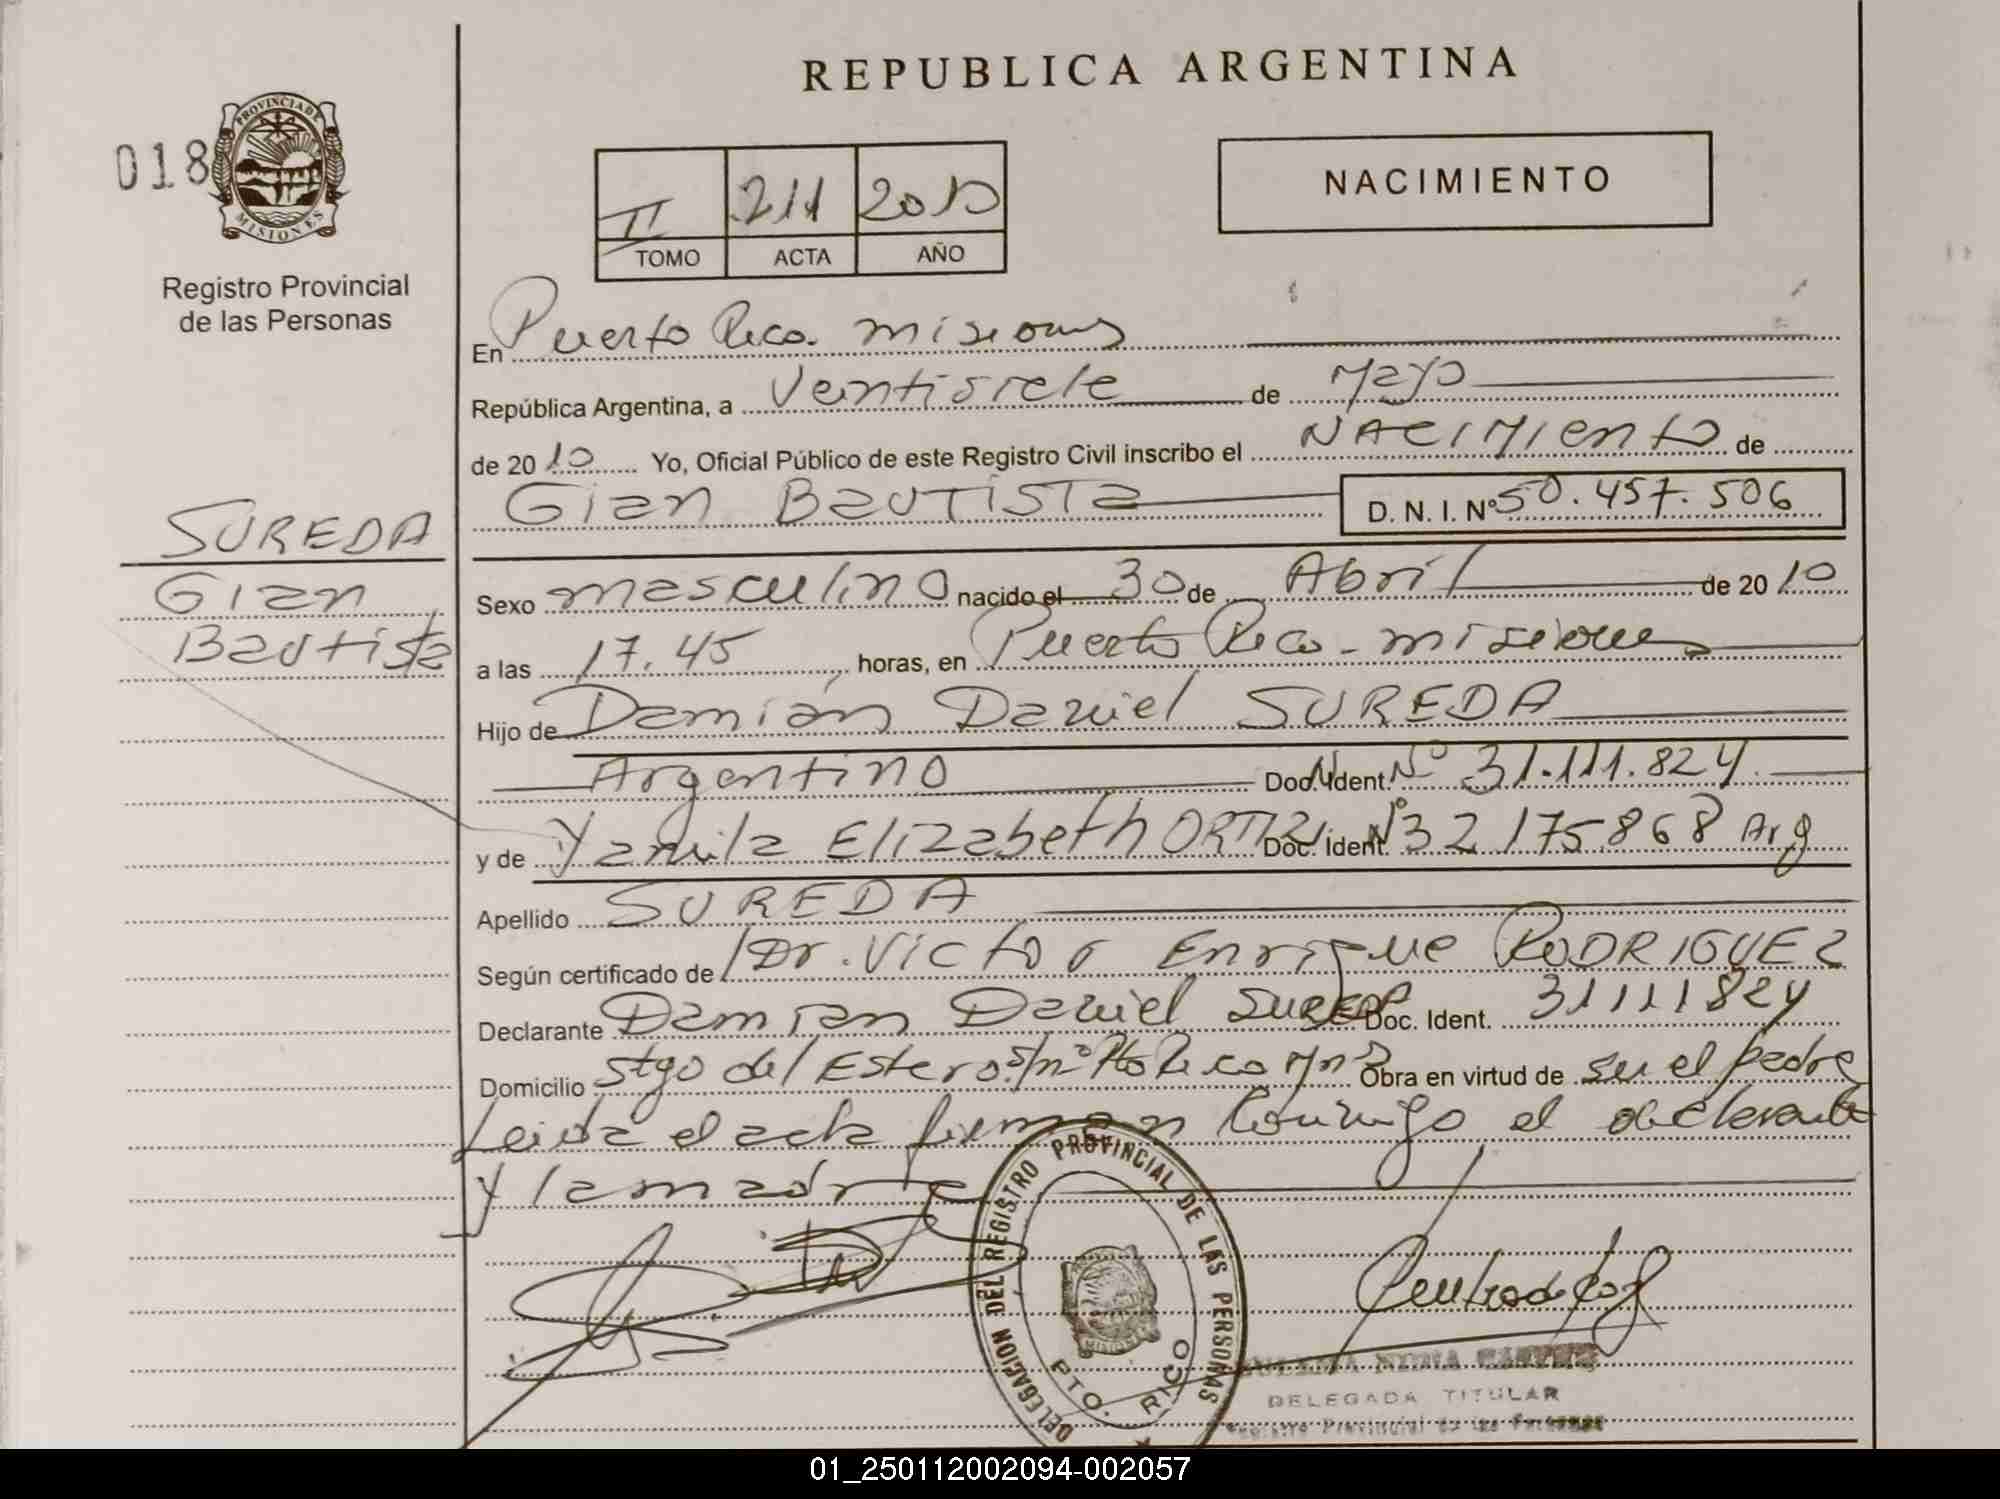 REPUBLICA ARGENTINA
018
PROVINCIA DE
MISIONES
Registro Provincial
de las Personas
II 211 2010
TOMO ACTA AÑO
NACIMIENTO
En Puerto Rico. misiones
República Argentina, a Veintisiete de Mayo
de 2010 Yo, Oficial Público de este Registro Civil inscribo el NACIMIENTO de
Gian BAUTISTA D. N. I. Nº 50.457.506
SUREDA
Gian
Bautista
Sexo masculino nacido el 30 de Abril de 2010
a las 17.45 horas, en Puerto Rico - misiones
Hijo de Damián Daniel SUREDA
Argentino Doc. Ident. Nº 31.111.824
y de Yamila Elizabeth ORTIZ Doc. Ident. Nº 32175868 Arg
Apellido SUREDA
Según certificado de Dr. Victor Enrique RODRIGUEZ
Declarante Damian Daniel SUREDA Doc. Ident. 31111824
Domicilio Stgo del Estero s/nº Pto Rico Mnes Obra en virtud de su el padre
Leida el acta firman conmigo el declarante
y la madre
DELEGACION DEL REGISTRO PROVINCIAL DE LAS PERSONAS
MISIONES
PTO. RICO
DELEGADA TITULAR
Registro Provincial de las Personas
01_250112002094-002057